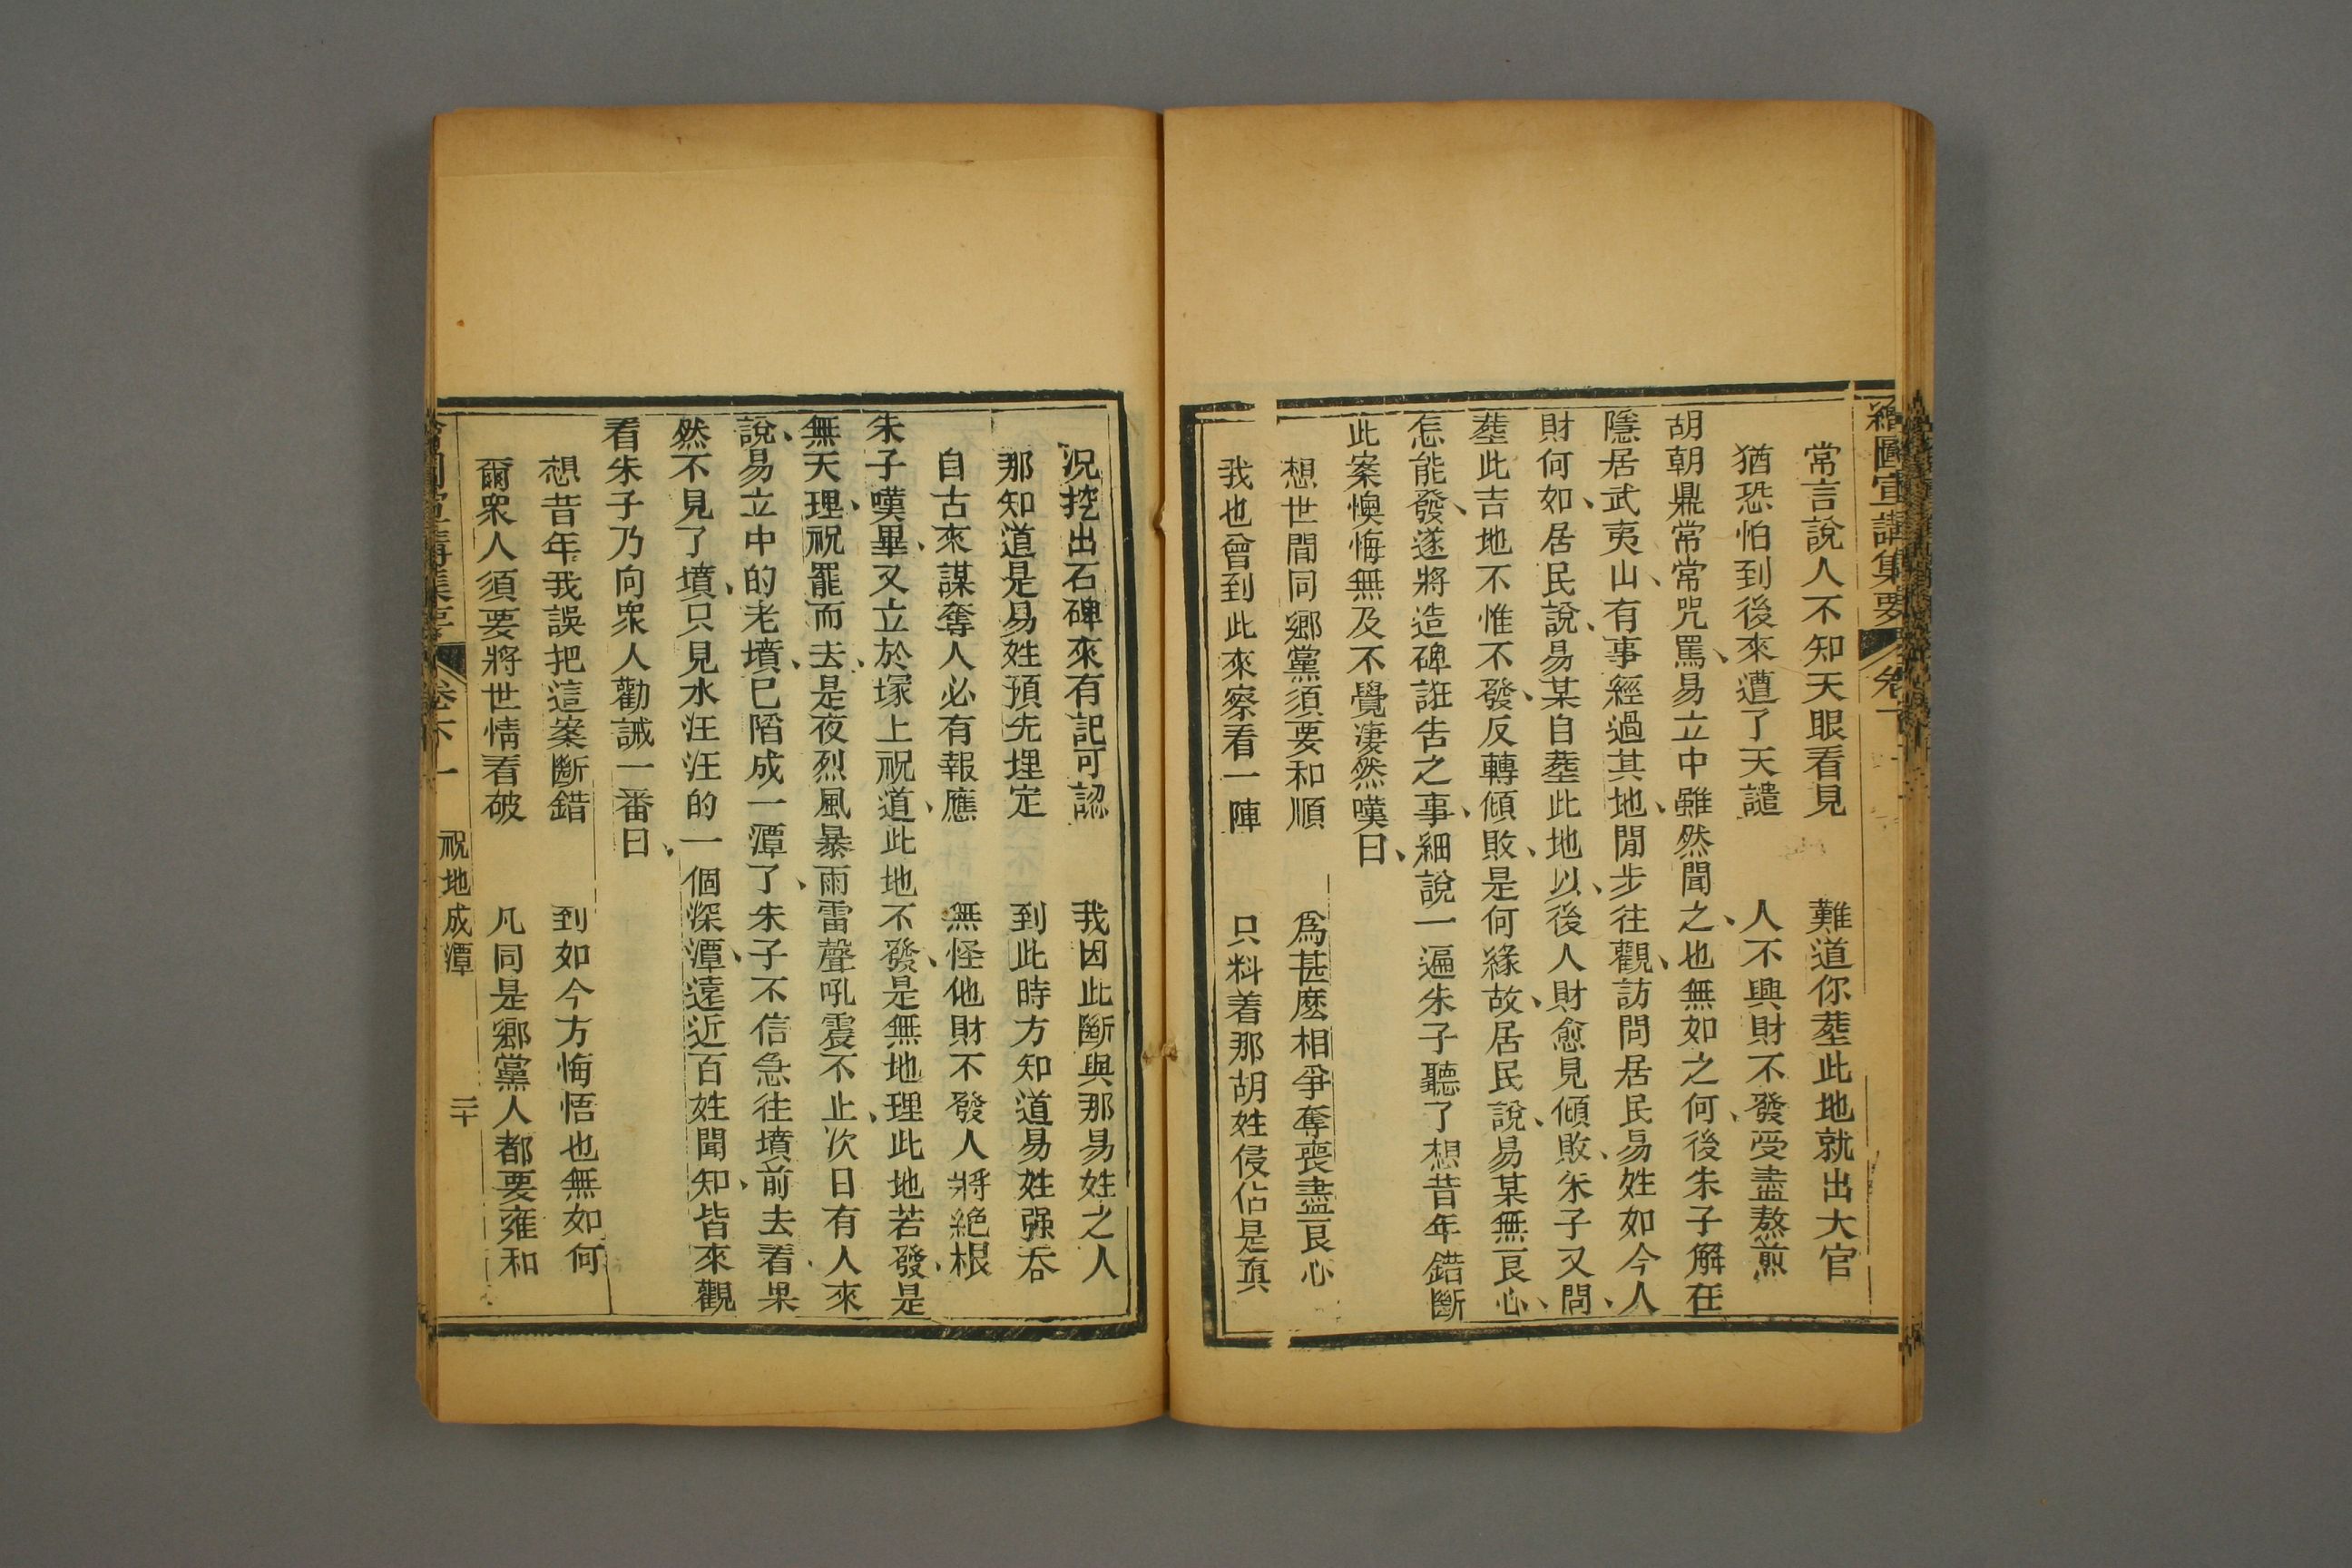 繪圖宣講集要
常言說人不知天眼看見　難道你塟此地就出大官
猶恐怕到後來遭了天譴　人不興財不發受盡熬煎
胡朝鼎常常咒罵、易立中雖然聞之、也無如之何、後朱子解在
隱居武夷山、有事經過其地、閒步往觀、訪問居民易姓如今人
財何如、居民說、易某自塟此地以、後人財愈見傾敗、朱子又問、
塟此吉地不惟不發、反轉傾敗、是何緣故、居民說、易某無良心、
怎能發、遂將造碑誑告之事、細說一遍朱子聽了想昔年錯斷
此案懊悔無及不覺凄然嘆曰、
想世間同鄉黨須要和順　爲甚麽相爭奪喪盡良心
我也曾到此來察看一陣　只料着那胡姓侵佔是真
況挖出石碑來有記可認　我因此斷與那易姓之人
那知道是易姓預先埋定　到此時方知道易姓强吞
自古來謀奪人必有報應　無怪他財不發人將絶根
朱子嘆畢、又立於塚上祝道、此地不發、是無地理此地若發、是
無天理、祝罷而去、是夜烈風暴雨雷聲吼震不止、次日有人來
說、易立中的老墳、已陷成一潭了、朱子不信急往墳前去看、果
然不見了墳、只見水汪汪的一個深潭、遠近百姓聞知、皆來觀
看朱子乃向衆人勸誡一番曰、
想昔年我誤把這案斷錯　到如今方悔悟也無如何
爾衆人須要將世情看破　凡同是鄉黨人都要雍和
祝地成潭
三十